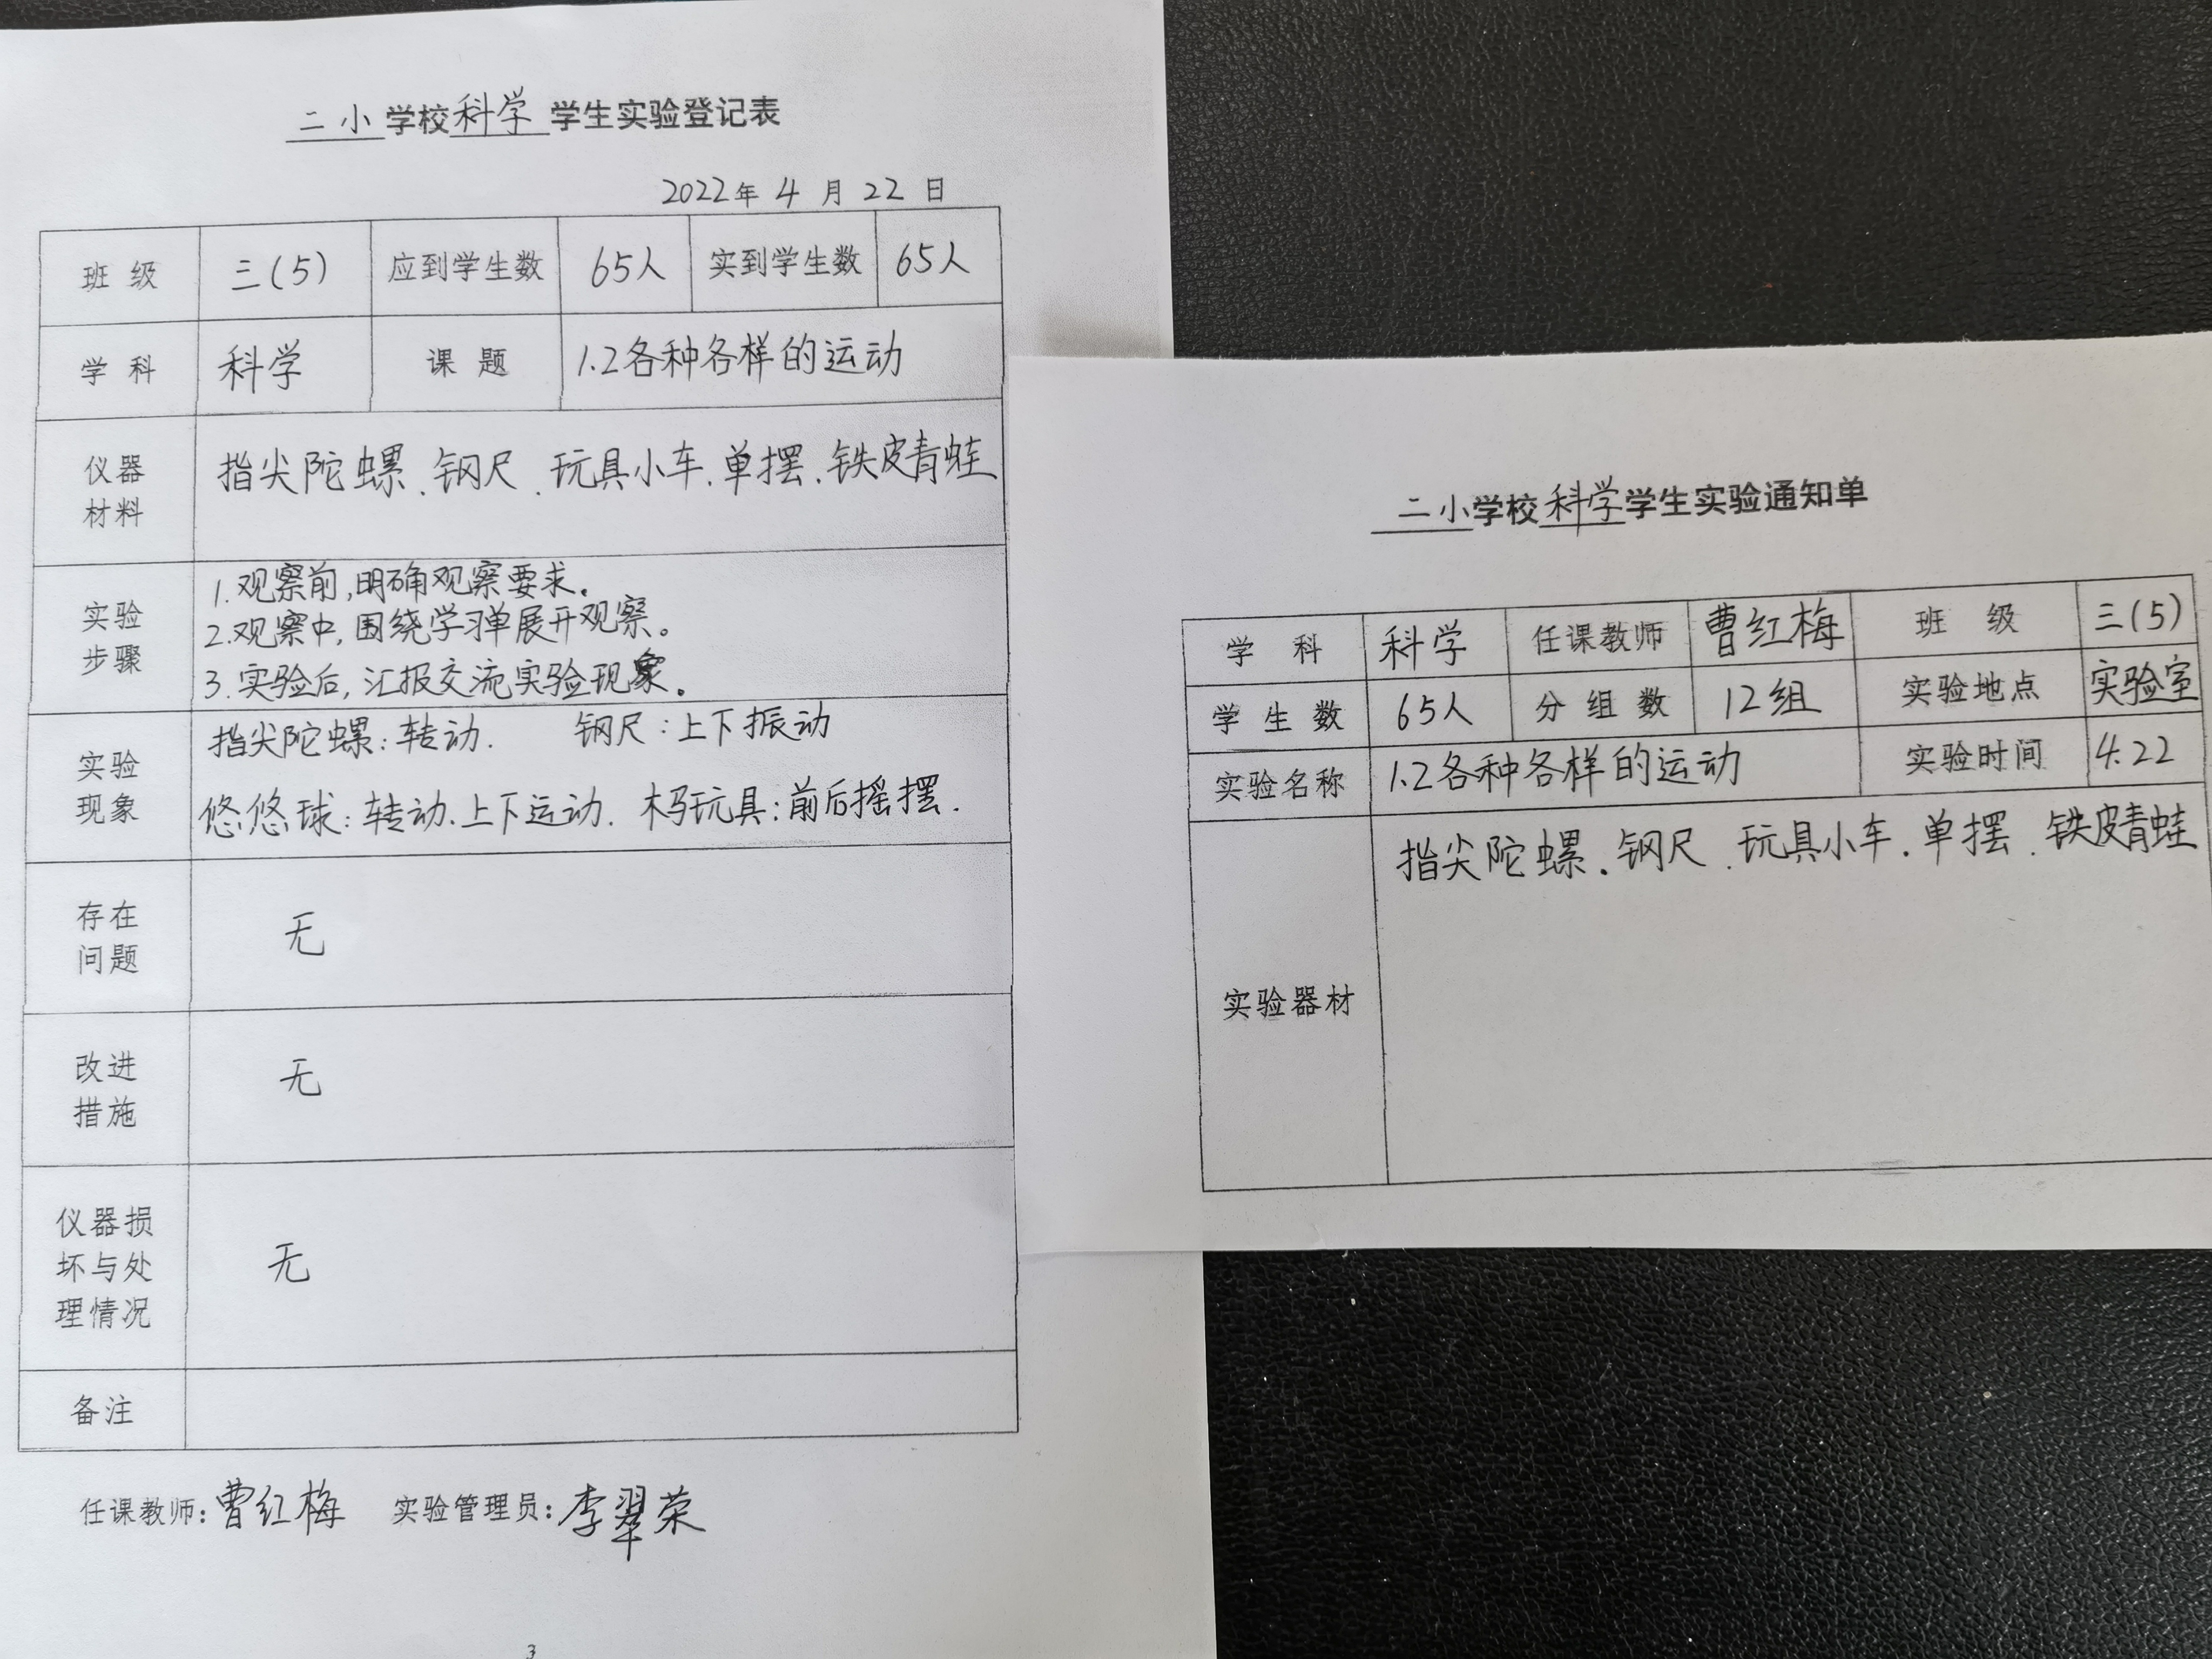 二小学校科学学生实验登记表
2022年 4 月 22 日
班 级 三(5) 应到学生数 65人 实到学生数 65人
学 科 科学 课 题 1.2各种各样的运动
仪器
材料
指尖陀螺、钢尺、玩具小车、单摆、铁皮青蛙
实验
步骤
1.观察前,明确观察要求。
2.观察中,围绕学习单展开观察。
3.实验后,汇报交流实验现象。
实验
现象
指尖陀螺:转动. 钢尺:上下振动
悠悠球:转动.上下运动. 木马玩具:前后摇摆.
存在
问题
无
改进
措施
无
仪器损
坏与处
理情况
无
备注
任课教师:曹红梅 实验管理员:李翠荣
3
二小学校科学学生实验通知单
学 科 科学 任课教师 曹红梅 班 级 三(5)
学 生 数 65人 分 组 数 12组 实验地点 实验室
实验名称 1.2各种各样的运动 实验时间 4.22
实验器材
指尖陀螺、钢尺、玩具小车、单摆、铁皮青蛙